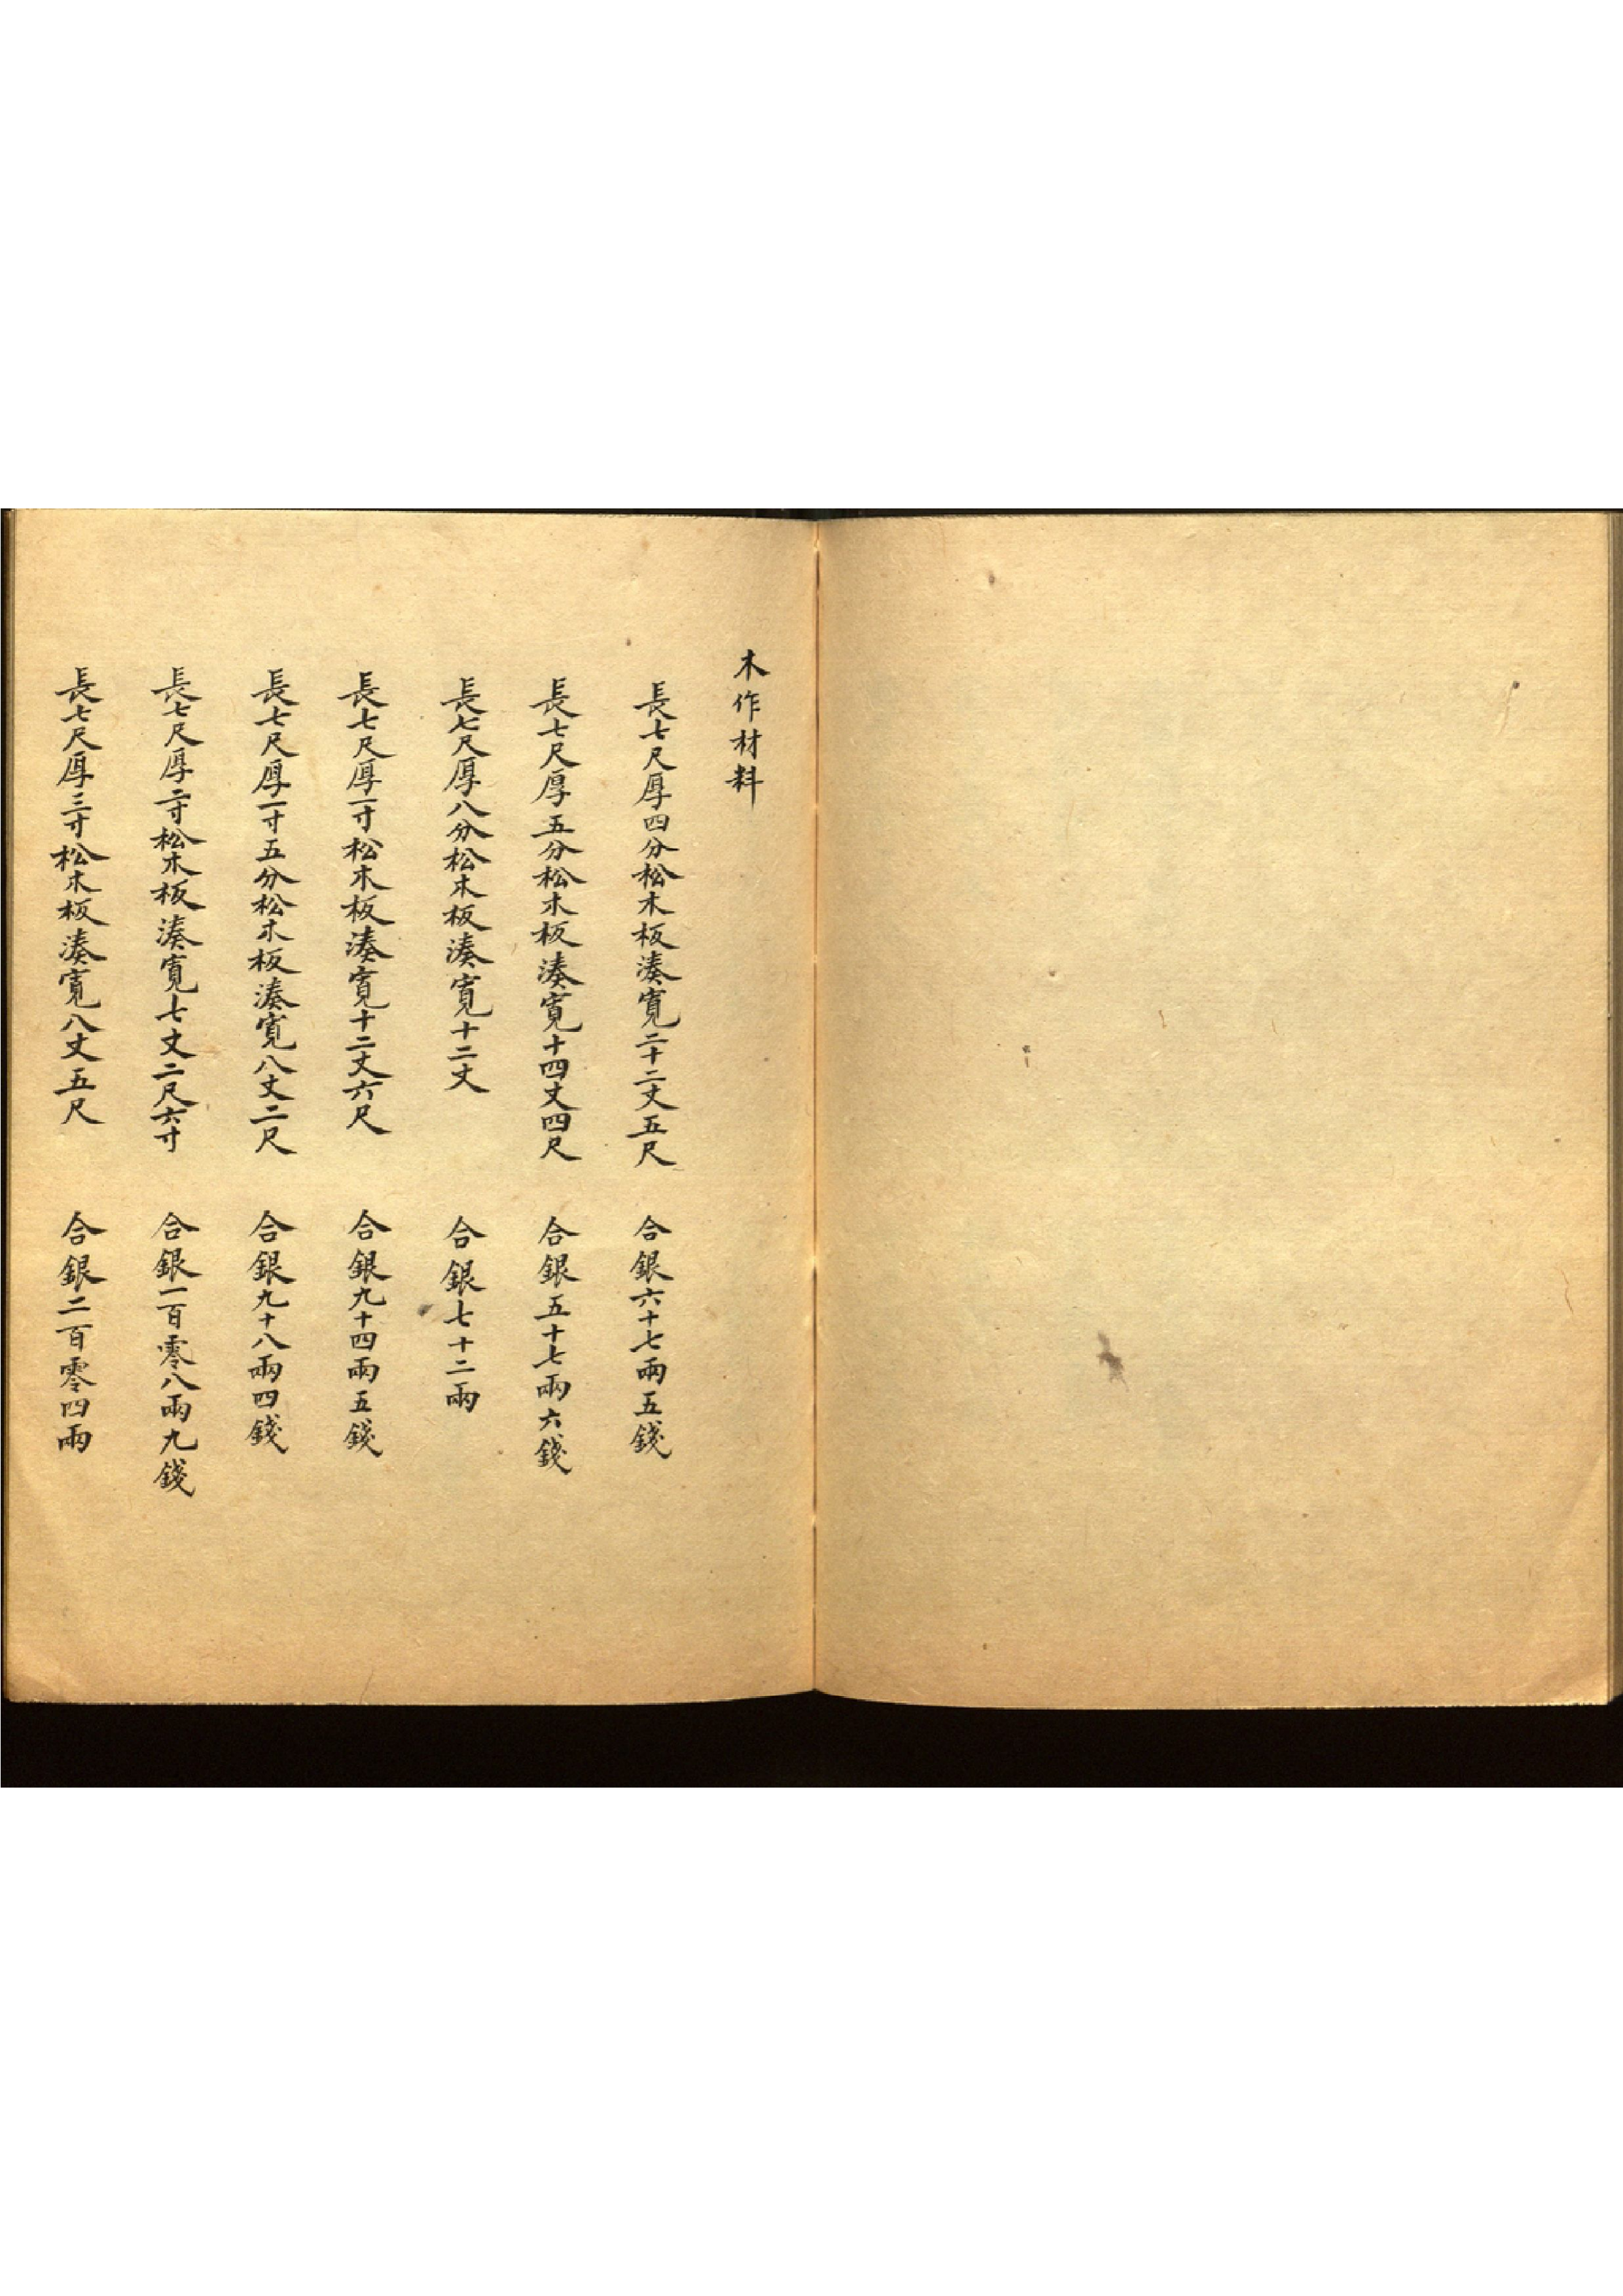 木作材料
長七尺厚四分松木板湊寬二十二丈五尺 合銀六十七兩五錢
長七尺厚五分松木板湊寬十四丈四尺 合銀五十七兩六錢
長七尺厚八分松木板湊寬十二丈 合銀七十二兩
長七尺厚一寸松木板湊寬十二丈六尺 合銀九十四兩五錢
長七尺厚一寸五分松木板湊寬八丈二尺 合銀九十八兩四錢
長七尺厚二寸松木板湊寬七丈二尺六寸 合銀一百零八兩九錢
長七尺厚三寸松木板湊寬八丈五尺 合銀二百零四兩